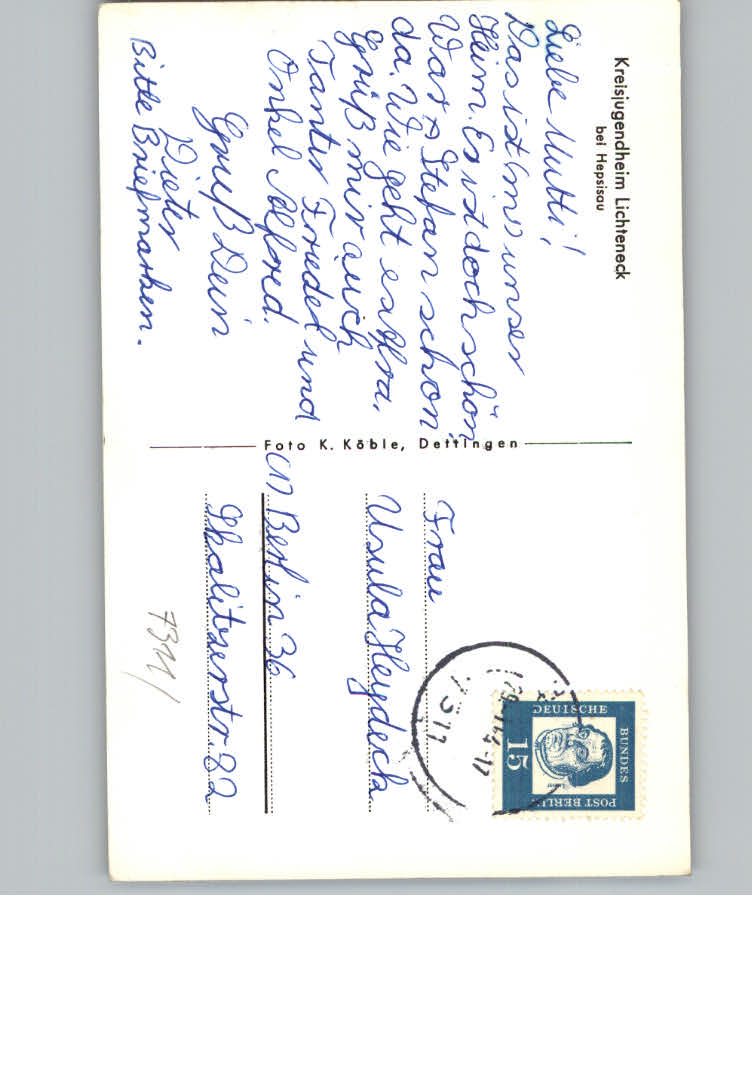 Kreisjugendheim Lichteneck
bei Hepsisau
Liebe Mutti!
Das ist unser
Heim. Es ist doch schön
War Stefan schon
da. Wie geht es
Grüß mir auch
Tante Friedel und
Onkel Alfred.
Gruß Dein
Dieter
Bitte Briefmarken.
Foto K. Köble, Dettingen
Frau
Ursula Heydeck
(1) Berlin 36
Skalitzerstr. 82
7311/
DEUTSCHE
BUNDES
POST BERLIN
15
Luther